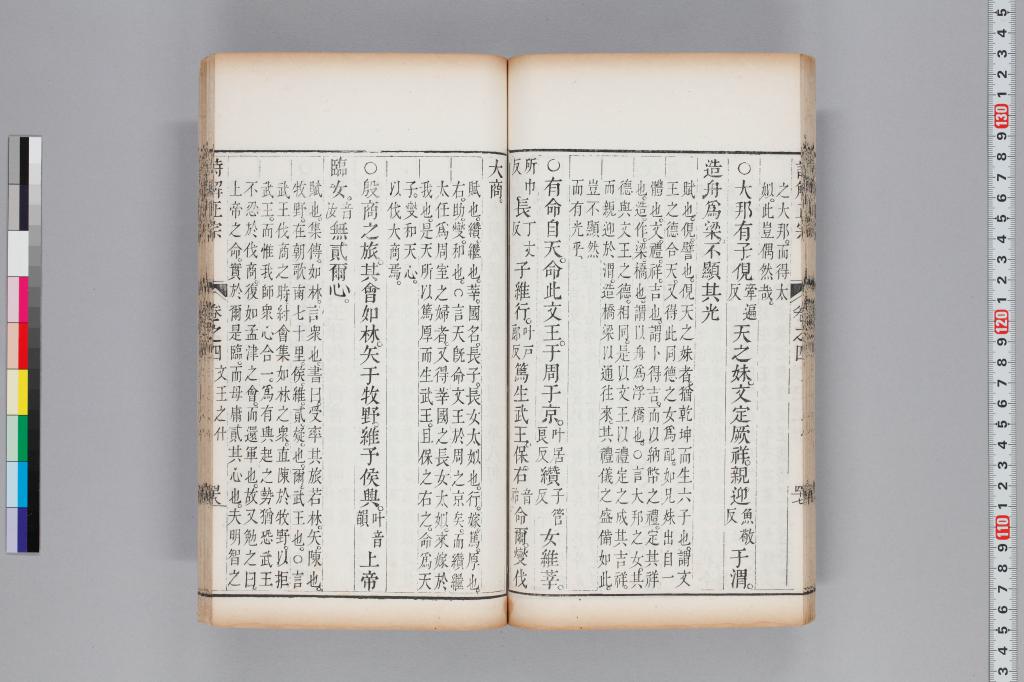 之大邦而得太
姒此豈偶然哉
○大邦有子俔牽遍反天之妹文定厥祥親迎魚敬反于渭
造舟爲梁不顯其光
賦也俔譬也俔天之妹者猶乾坤而生六子也謂文
王之德合天又得此同德之女爲配如兄妹出自一
體也文禮祥吉也謂卜得吉而以納幣之禮定其祥
也造作梁橋也謂以舟爲浮橋也○言大邦之女其
德與文王之德相同是以文王以禮定之成其吉祥
而親迎於渭造橋梁以通往來其禮儀之盛備如此
豈不顯然
而有光乎
○有命自天命此文王于周于京叶居良反纘子管反女維莘
所巾反長丁丈反子維行叶戸郎反篤生武王保右音命爾燮伐
大商
賦也纘繼也莘國名長子長女太姒也行嫁篤厚也
右助燮和也○言天旣命文王於周之京矣而纘繼
太任爲周室之婦者又得莘國之長女太姒來嫁於
我也是天所以篤厚而生武王且保之右之命爲天
子燮和天心
以伐大商焉
○殷商之旅其會如林矢于牧野維予侯興叶音韻上帝
臨女音汝無貳爾心
賦也集傳如林言衆也書曰受率其旅若林矢陳也
牧野在朝歌南七十里侯維貳疑也爾武王也○言
武王伐商之時紂會集如林之衆直陳於牧野以拒
武王而惟我師衆心合一爲有興起之勢猶恐武王
不忍於伐商復如孟津之會而還軍也故又勉之曰
上帝之命實於爾是臨而毋庸貳其心也夫明智之
詩解正宗 卷之四 文王之什